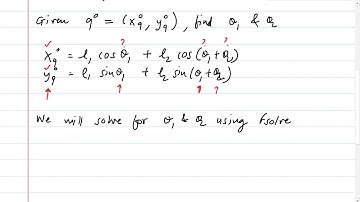 Given q° = (x_q°, y_q°), find θ₁ & θ₂
? ? ?
x_q° = l₁ cos θ₁ + l₂ cos(θ₁+θ₂)
y_q° = l₁ sin θ₁ + l₂ sin(θ₁+θ₂)
? ?
We will solve for θ₁ & θ₂ using fsolve